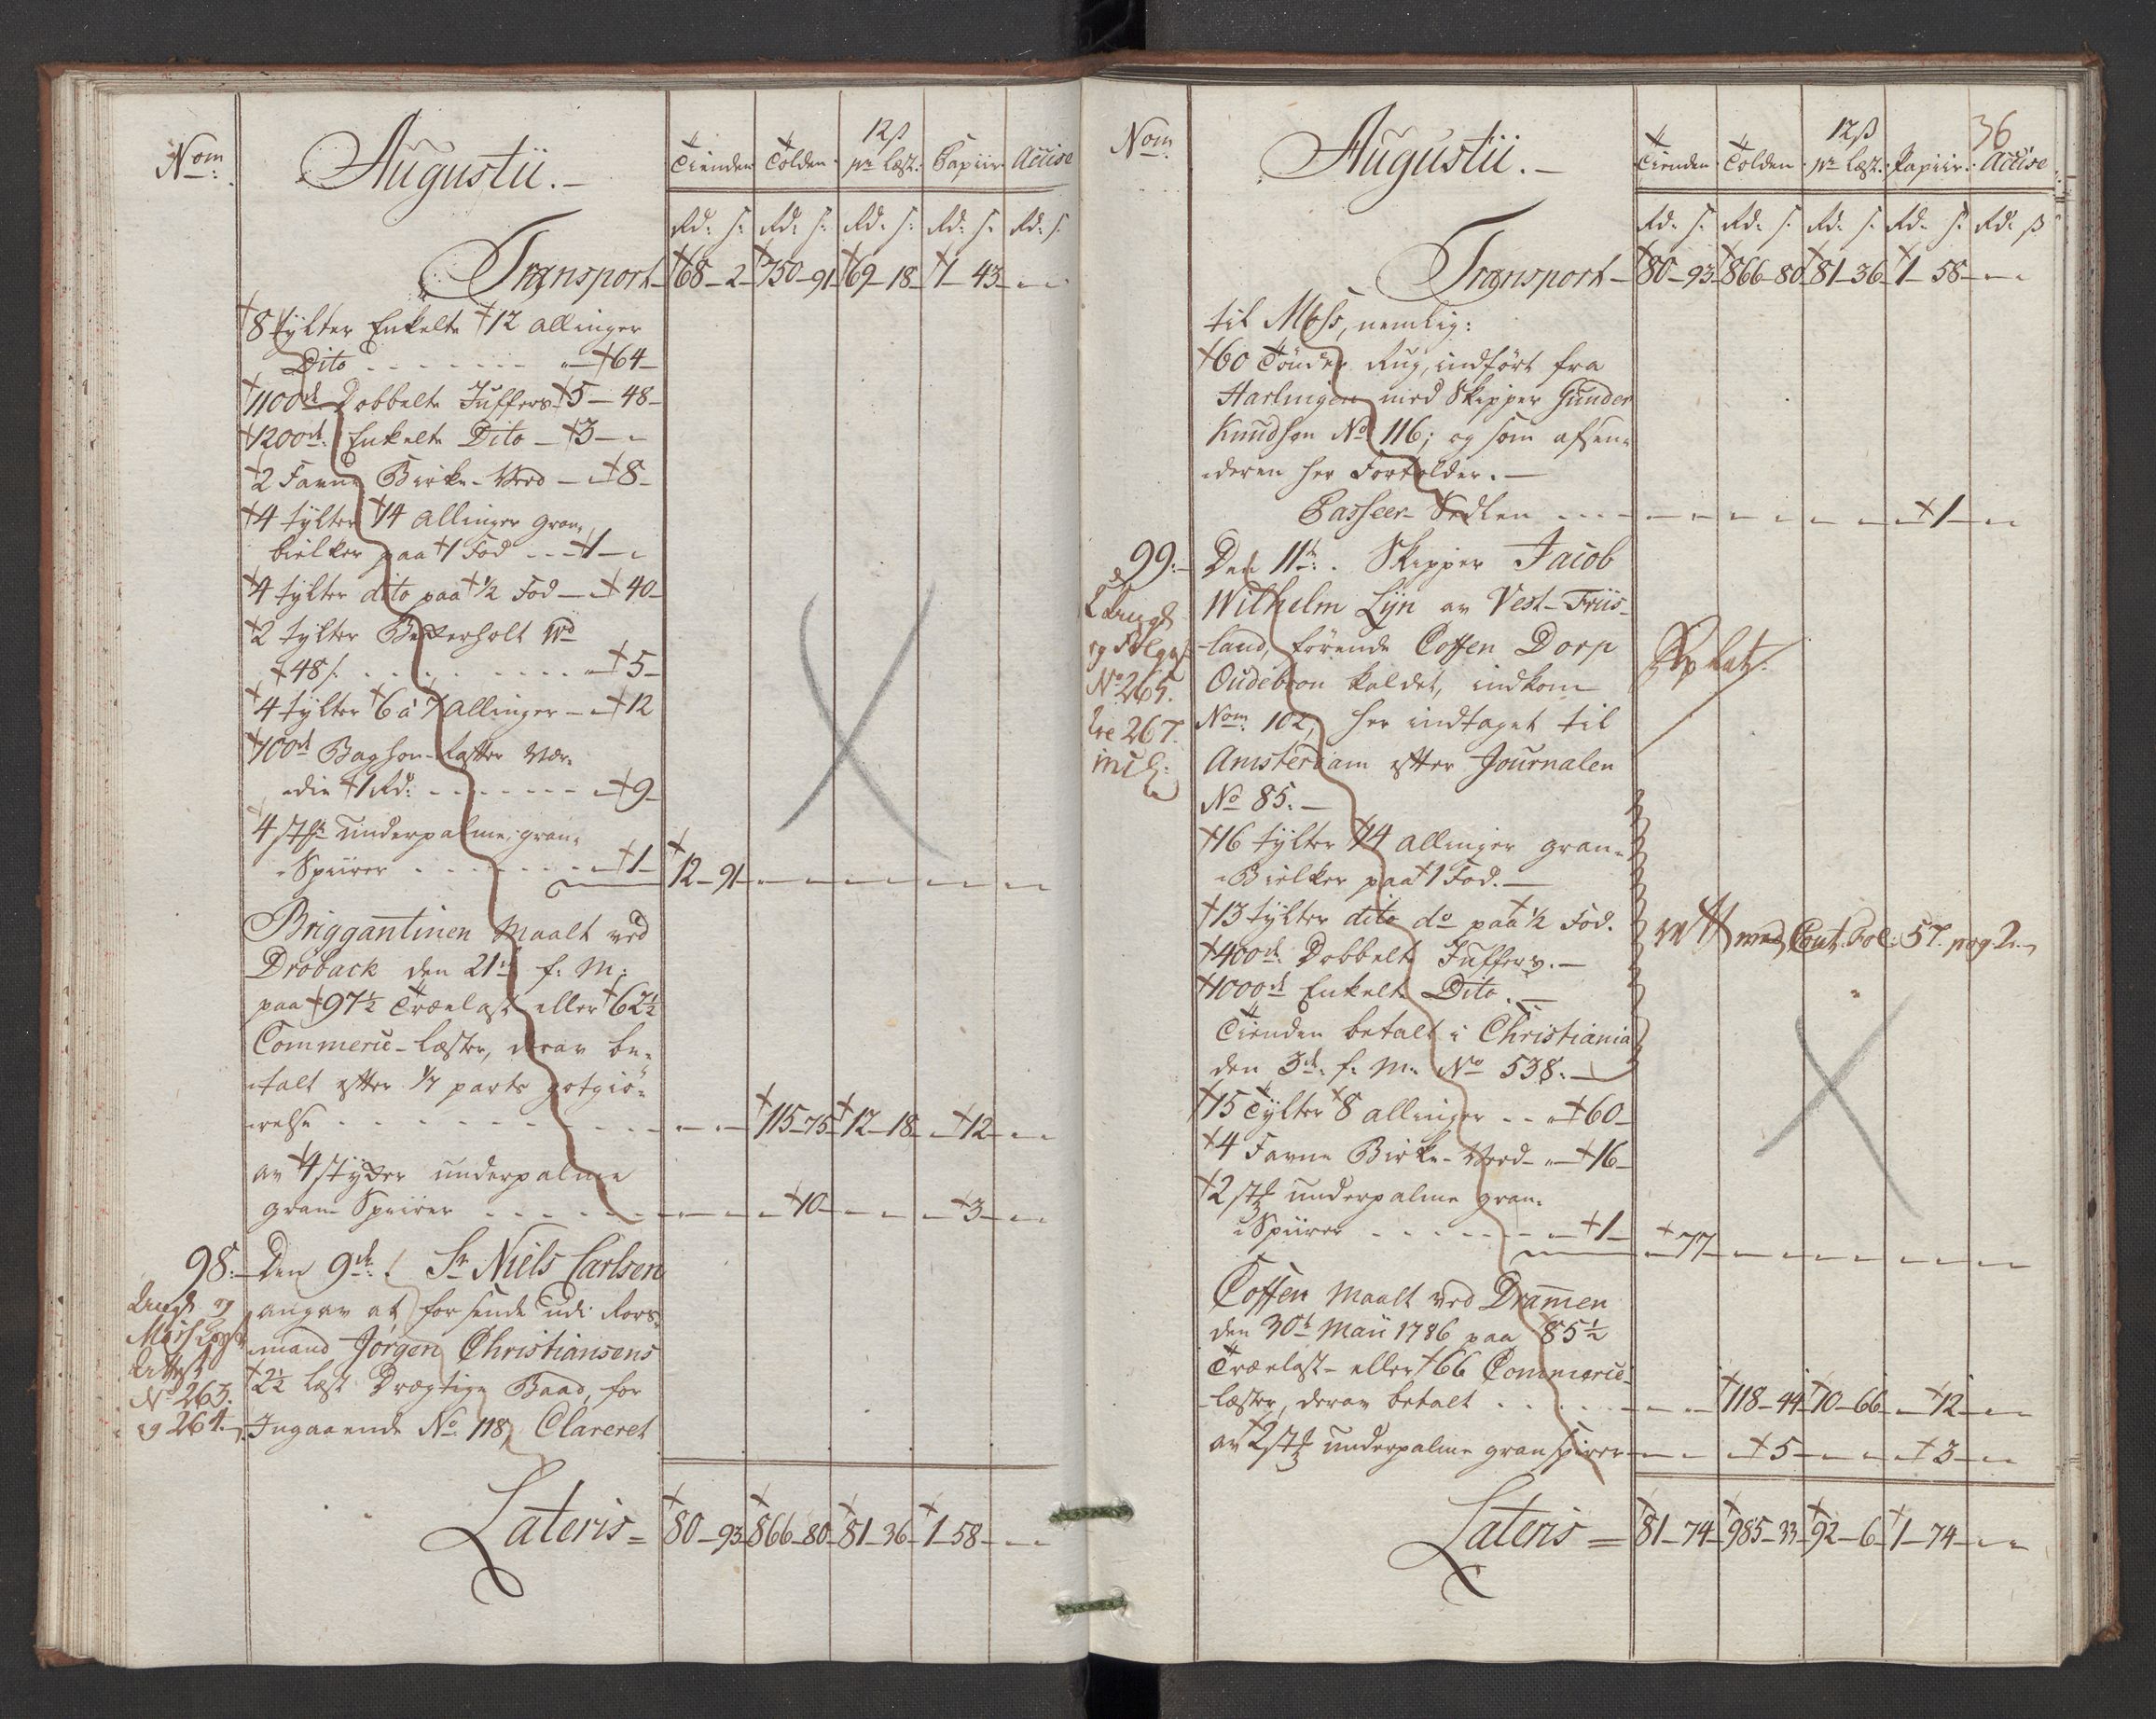 Nom:
Augustii.-
Tienden Tolden 12 s pr Læst: Papiir Accise
Rd: s: Rd: s: Rd: s: Rd: s: Rd: s
Transport 68-2 750-91 69-18 1-43
8 tÿlter Enkelte 12 allinger
Dito - - - - - 64-
1100de Dobbelte Juffers 5-48-
1200de Enkelte Dito - 3-
2 Favne Birke-Veed - 8-
4 tÿlter 14 allinger gran-
bielker paa 1 Fod - - 1-
4 tÿlter dito paa 1/2 Fod - 40-
2 tÿlter
48 s. . . . . . 5-
4 tÿlter 6 à 7 allinger - 12
100de Baghon-Latter Vær-
die 1 Rd: - - - - 9-
4 stkr underpalme gran-
Spiirer . . . . . 1- 12-91
Briggantinen Maalt ved
Droback den 21de f: M:
paa 97½ Trælast eller 62½
Commerce-læster, derav be-
talt efter 1/7 parts gotgiö-
relse . . . . . 115-75 12-18 12
av 4 stÿkker underpalme
gran Spiirer . . . . 10 3
98:- Den 9de . Sr Niels Carlsen
angav at forsende udi Rors-
mand Jørgen Christiansens
2½ læst Drægtige Baad, for
Ingaaende No 118, Clareret
og
No 263.
og 264.
Lateris = 80-93 866-80 81-36 1-58
36
Nom
Augustii.-
Tienden Tolden 12 s pr Læst: Papiir: Accise
Rd: s: Rd: s: Rd: s: Rd: s: Rd: s
Transport - 80-93 866-80 81-36 1-58
til Moss, nemlig:
60 Tönder Rug, indført fra
Harlingen med Skipper Gunder
Knudsøn No 116; og som afsen-
deren her Fortolder.-
Passeer-Sedlen . . . 1
99:- Den 11te: . Skipper Jacob
Wilhelm Lÿn av Vest-Friis-
land, förende Coffen Dorp
Oudebron kaldet, indkom
Nom: 102, her indtaget til
Amsterdam efter Journalen
No 85.-
og
No 265.
267.
incl:
16 tÿlter 14 allinger gran-
Bielker paa 1 Fod.-
13 tÿlter dito do paa 1/2 Fod.
400de Dobbelte Juffers.-
1000de Enkelte Dito.-
Tienden betalt i Christiania
den 3de f: M: No 538.-
med Cont: Fol: 57. pag 2.
15 Tÿlter 8 allinger . . 60-
4 Favne Birke-Veed - 16-
2 stk underpalme gran-
Spiirer . . . . . 1- 77
Coffen Maalt ved Dramen
den 30te Maii 1786 paa 85½
Trælast-eller 66 Commerce-
læster, derav betalt . . . 118-44 10-66 12
av 2 stk underpalme gran spirer - 5 3
Lateris = 81-74 985-33 92-6 1-74